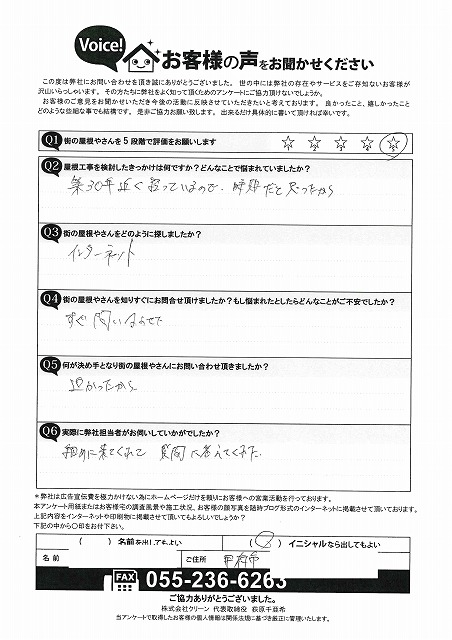 Voice!
お客様の声をお聞かせください
この度は弊社にお問い合わせを頂き誠にありがとうございました。 世の中には弊社の存在やサービスをご存知ないお客様が
沢山いらっしゃいます。 その方たちに弊社をよく知って頂くためのアンケートにご協力頂けないでしょうか。
お客様のご意見をお聞かせいただき今後の活動に反映させていただきたいと考えております。 良かったこと、嬉しかったこと
どのような些細な事でも結構です。 是非ご協力お願い致します。 出来るだけ具体的に書いて頂ければ幸いです。
Q1 街の屋根やさんを5段階で評価をお願いします
☆ ☆ ☆ ☆ ☆
Q2 屋根工事を検討したきっかけは何ですか?どんなことで悩まれていましたか?
築30年近く経っているので、時期だと思ったから
Q3 街の屋根やさんをどのように探しましたか?
インターネット
Q4 街の屋根やさんを知りすぐにお問合せ頂けましたか?もし悩まれたとしたらどんなことがご不安でしたか?
すぐ問い合わせた
Q5 何が決め手となり街の屋根やさんにお問い合わせ頂きましたか?
近かったから
Q6 実際に弊社担当者がお伺いしていかがでしたか?
親切に来てくれて 質問に答えてくれた
＊弊社は広告宣伝費を極力かけない為にホームページだけを頼りにお客様への営業活動を行っております。
本アンケート用紙またはお客様宅の調査風景や施工状況、お客様の顔写真を随時ブログ形式のインターネットに掲載させて頂いております。
上記内容をインターネットや印刷物に掲載させて頂いてもよろしいでしょうか?
下記の中から○印をお付下さい。
( ) 名前を出してもよい (○) イニシャルなら出してもよい
名前 ご住所 甲府市
FAX 055-236-6263
ご協力ありがとうございました。
株式会社クリーン 代表取締役 萩原千亜希
当アンケートで取得したお客様の個人情報は関係法規に基づき厳正に管理いたします。